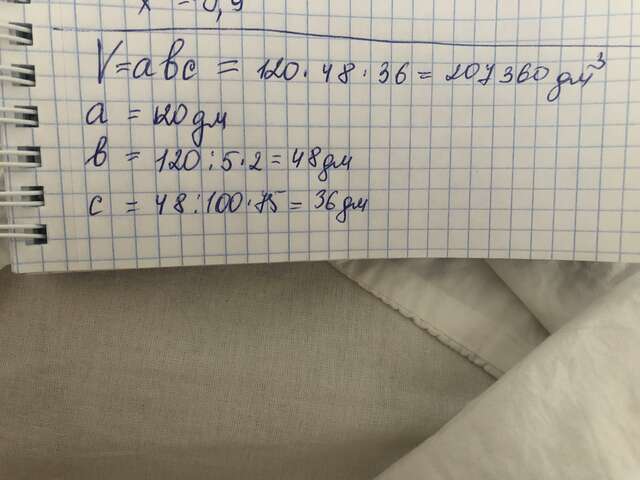 x = 0,9
V = abc = 120 · 48 · 36 = 207360 дм³
a = 120 дм
b = 120 : 5 · 2 = 48 дм
c = 48 : 100 · 75 = 36 дм